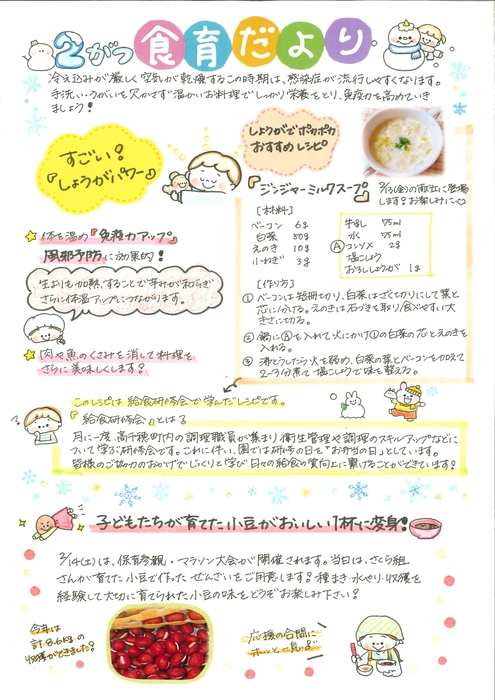 2がつ 食育だより
冷え込みが厳しく空気が乾燥するこの時期は、感染症が流行しやすくなります。
手洗い・うがいを欠かさず温かいお料理でしっかり栄養をとり、免疫力を高めていき
ましょう！
すごい！
『しょうがパワー』
しょうがでポカポカ
おすすめレシピ
☆体を温め『免疫力アップ』
風邪予防に効果的！
生よりも加熱することで辛みが和らぎ
さらに体温アップにつながります。
☆肉や魚のくさみを消して料理を
さらに美味しくします！
『ジンジャーミルクスープ』
2/13(金)の献立に登場
します！お楽しみに♡
[材料]
ベーコン 6g
白菜 50g
えのき 10g
小ねぎ 3g
Ⓐ
牛乳 75ml
水 75ml
コンソメ 2g
塩こしょう
おろしょうが 1g
[作り方]
①ベーコンは短冊切り、白菜はざく切りにして葉と
芯に分ける。えのきは石づきを取り食べやすい大
きさに切る。
②鍋にⒶを入れて火にかけ①の白菜の芯とえのきを
入れる。
③沸とうしたら火を弱め、白菜の葉とベーコンを加えて
2〜3分煮て塩こしょうで味を整える。
このレシピは給食研修会で学んだレシピです。
『給食研修会』とは？
月に一度、高千穂町内の調理職員が集まり衛生管理や調理のスキルアップなどに
ついて学ぶ研修会です。これに伴い、園では研修の日を"お弁当の日"としています。
皆様のご協力のおかげでじっくりと学び日々の給食の質向上に繋げることができています！
子どもたちが育てた小豆がおいしい1杯に変身！
2/14(土)は、保育参観・マラソン大会が開催されます。当日は、さくら組
さんが育てた小豆で作ったぜんざいをご用意します！種まき・水やり・収穫を
経験して大切に育てられた小豆の味をどうぞお楽しみ下さい！
今年は
計8.6kgの
収穫ができました！
応援の合間に
ホッと一息♪